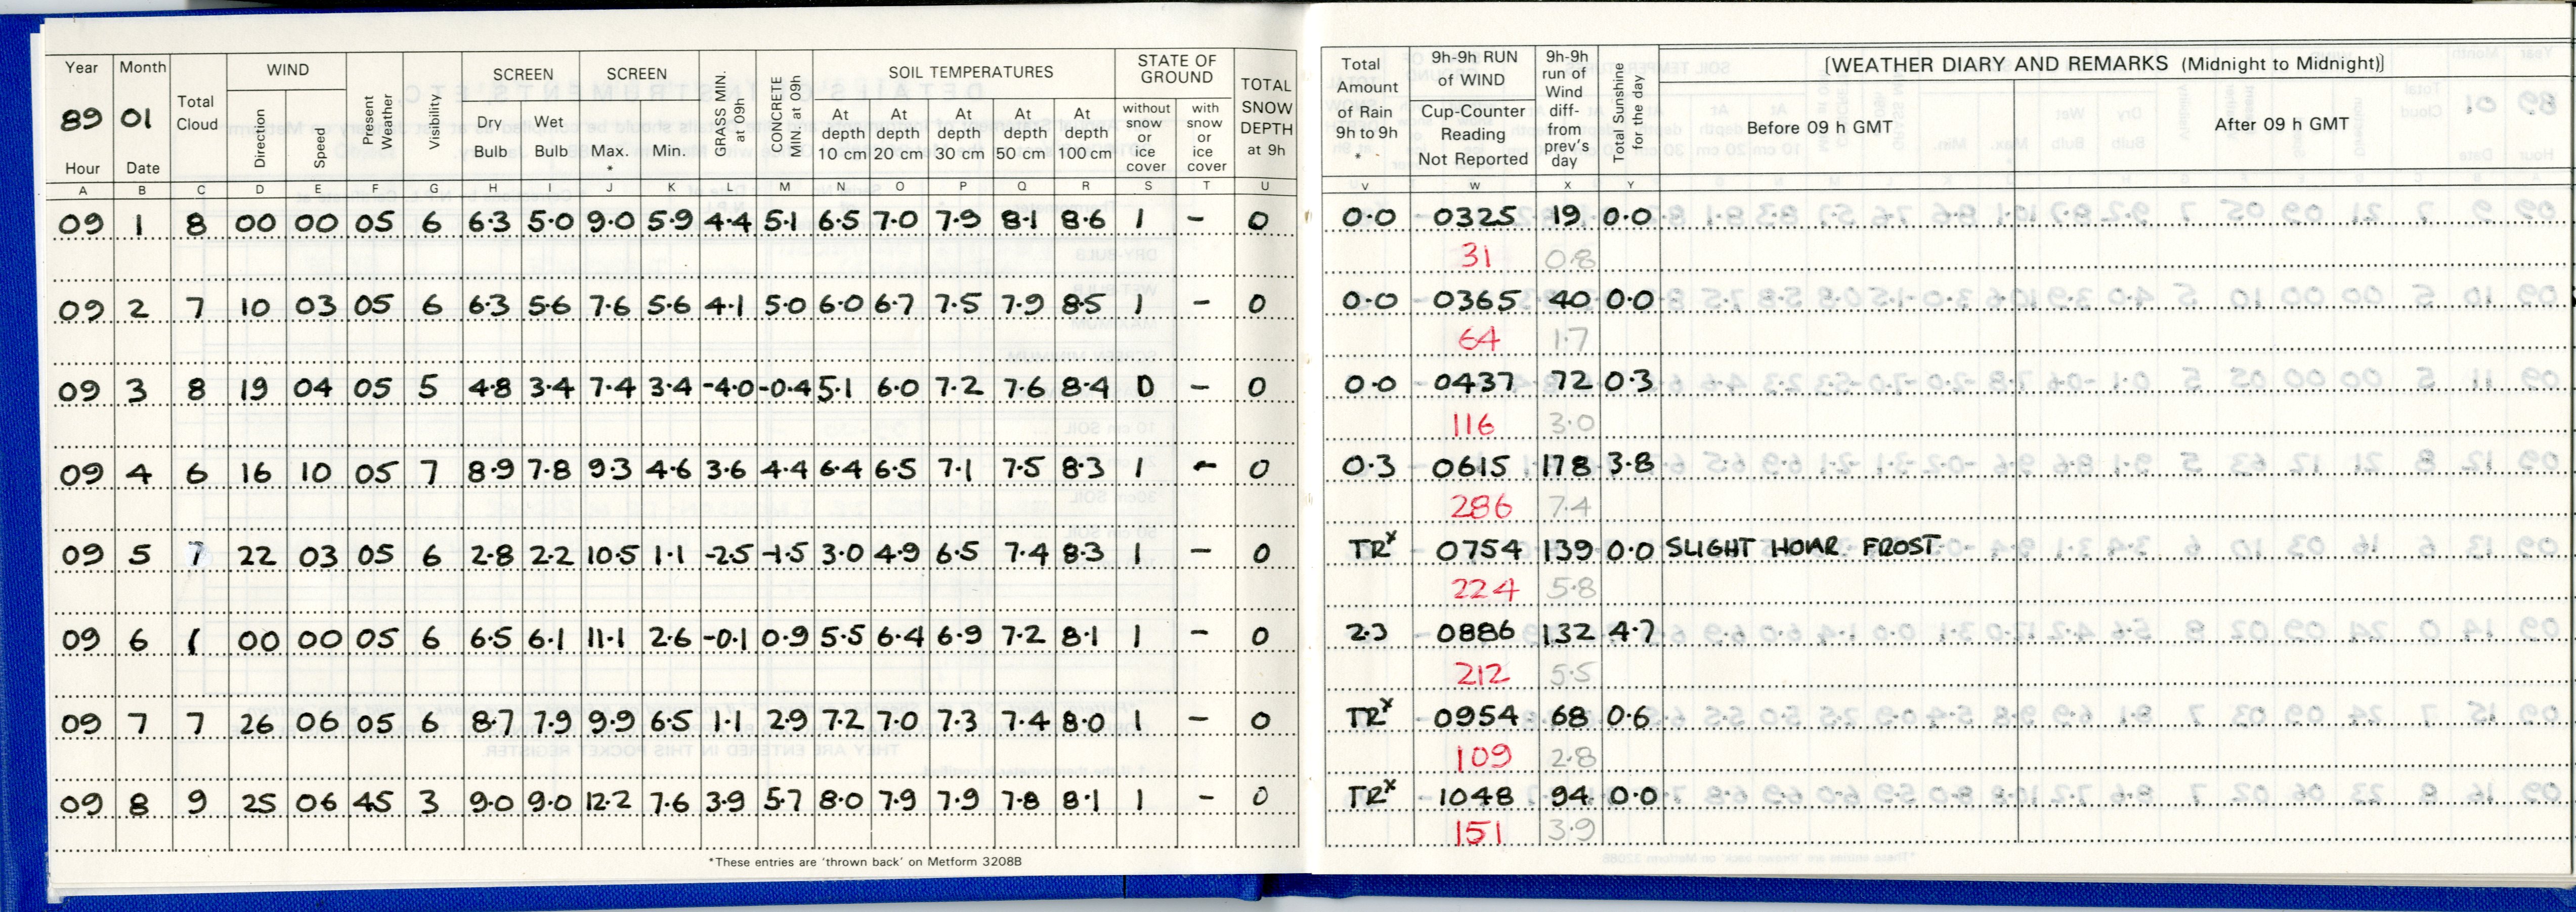 Year Month Total Cloud WIND Present Weather Visibility SCREEN SCREEN GRASS MIN. at 09h CONCRETE MIN at 09h SOIL TEMPERATURES STATE OF GROUND TOTAL SNOW DEPTH at 9h
89 01 Direction Speed Dry Bulb Wet Bulb Max. * Min. At depth 10 cm At depth 20 cm At depth 30 cm At depth 50 cm At depth 100 cm without snow or ice cover with snow or ice cover
Hour Date
A B C D E F G H I J K L M N O P Q R S T U
09 1 8 00 00 05 6 6.3 5.0 9.0 5.9 4.4 5.1 6.5 7.0 7.9 8.1 8.6 1 - 0
09 2 7 10 03 05 6 6.3 5.6 7.6 5.6 4.1 5.0 6.0 6.7 7.5 7.9 8.5 1 - 0
09 3 8 19 04 05 5 4.8 3.4 7.4 3.4 -4.0 -0.4 5.1 6.0 7.2 7.6 8.4 0 - 0
09 4 6 16 10 05 7 8.9 7.8 9.3 4.6 3.6 4.4 6.4 6.5 7.1 7.5 8.3 1 - 0
09 5 7 22 03 05 6 2.8 2.2 10.5 1.1 -2.5 -1.5 3.0 4.9 6.5 7.4 8.3 1 - 0
09 6 1 00 00 05 6 6.5 6.1 11.1 2.6 -0.1 0.9 5.5 6.4 6.9 7.2 8.1 1 - 0
09 7 7 26 06 05 6 8.7 7.9 9.9 6.5 1.1 2.9 7.2 7.0 7.3 7.4 8.0 1 - 0
09 8 9 25 06 45 3 9.0 9.0 12.2 7.6 3.9 5.7 8.0 7.9 7.9 7.8 8.1 1 - 0
*These entries are 'thrown back' on Metform 3208B
Total Amount of Rain 9h to 9h * 9h-9h RUN of WIND 9h-9h run of Wind diff- from prev's day Total Sunshine for the day [WEATHER DIARY AND REMARKS (Midnight to Midnight)]
Cup-Counter Reading Not Reported Before 09 h GMT After 09 h GMT
V W X Y
0.0 0325 19 0.0
31 0.8
0.0 0365 40 0.0
64 1.7
0.0 0437 72 0.3
116 3.0
0.3 0615 178 3.8
286 7.4
TRx 0754 139 0.0 SLIGHT HOAR FROST
224 5.8
2.3 0886 132 4.7
212 5.5
TRx 0954 68 0.6
109 2.8
TRx 1048 94 0.0
151 3.9